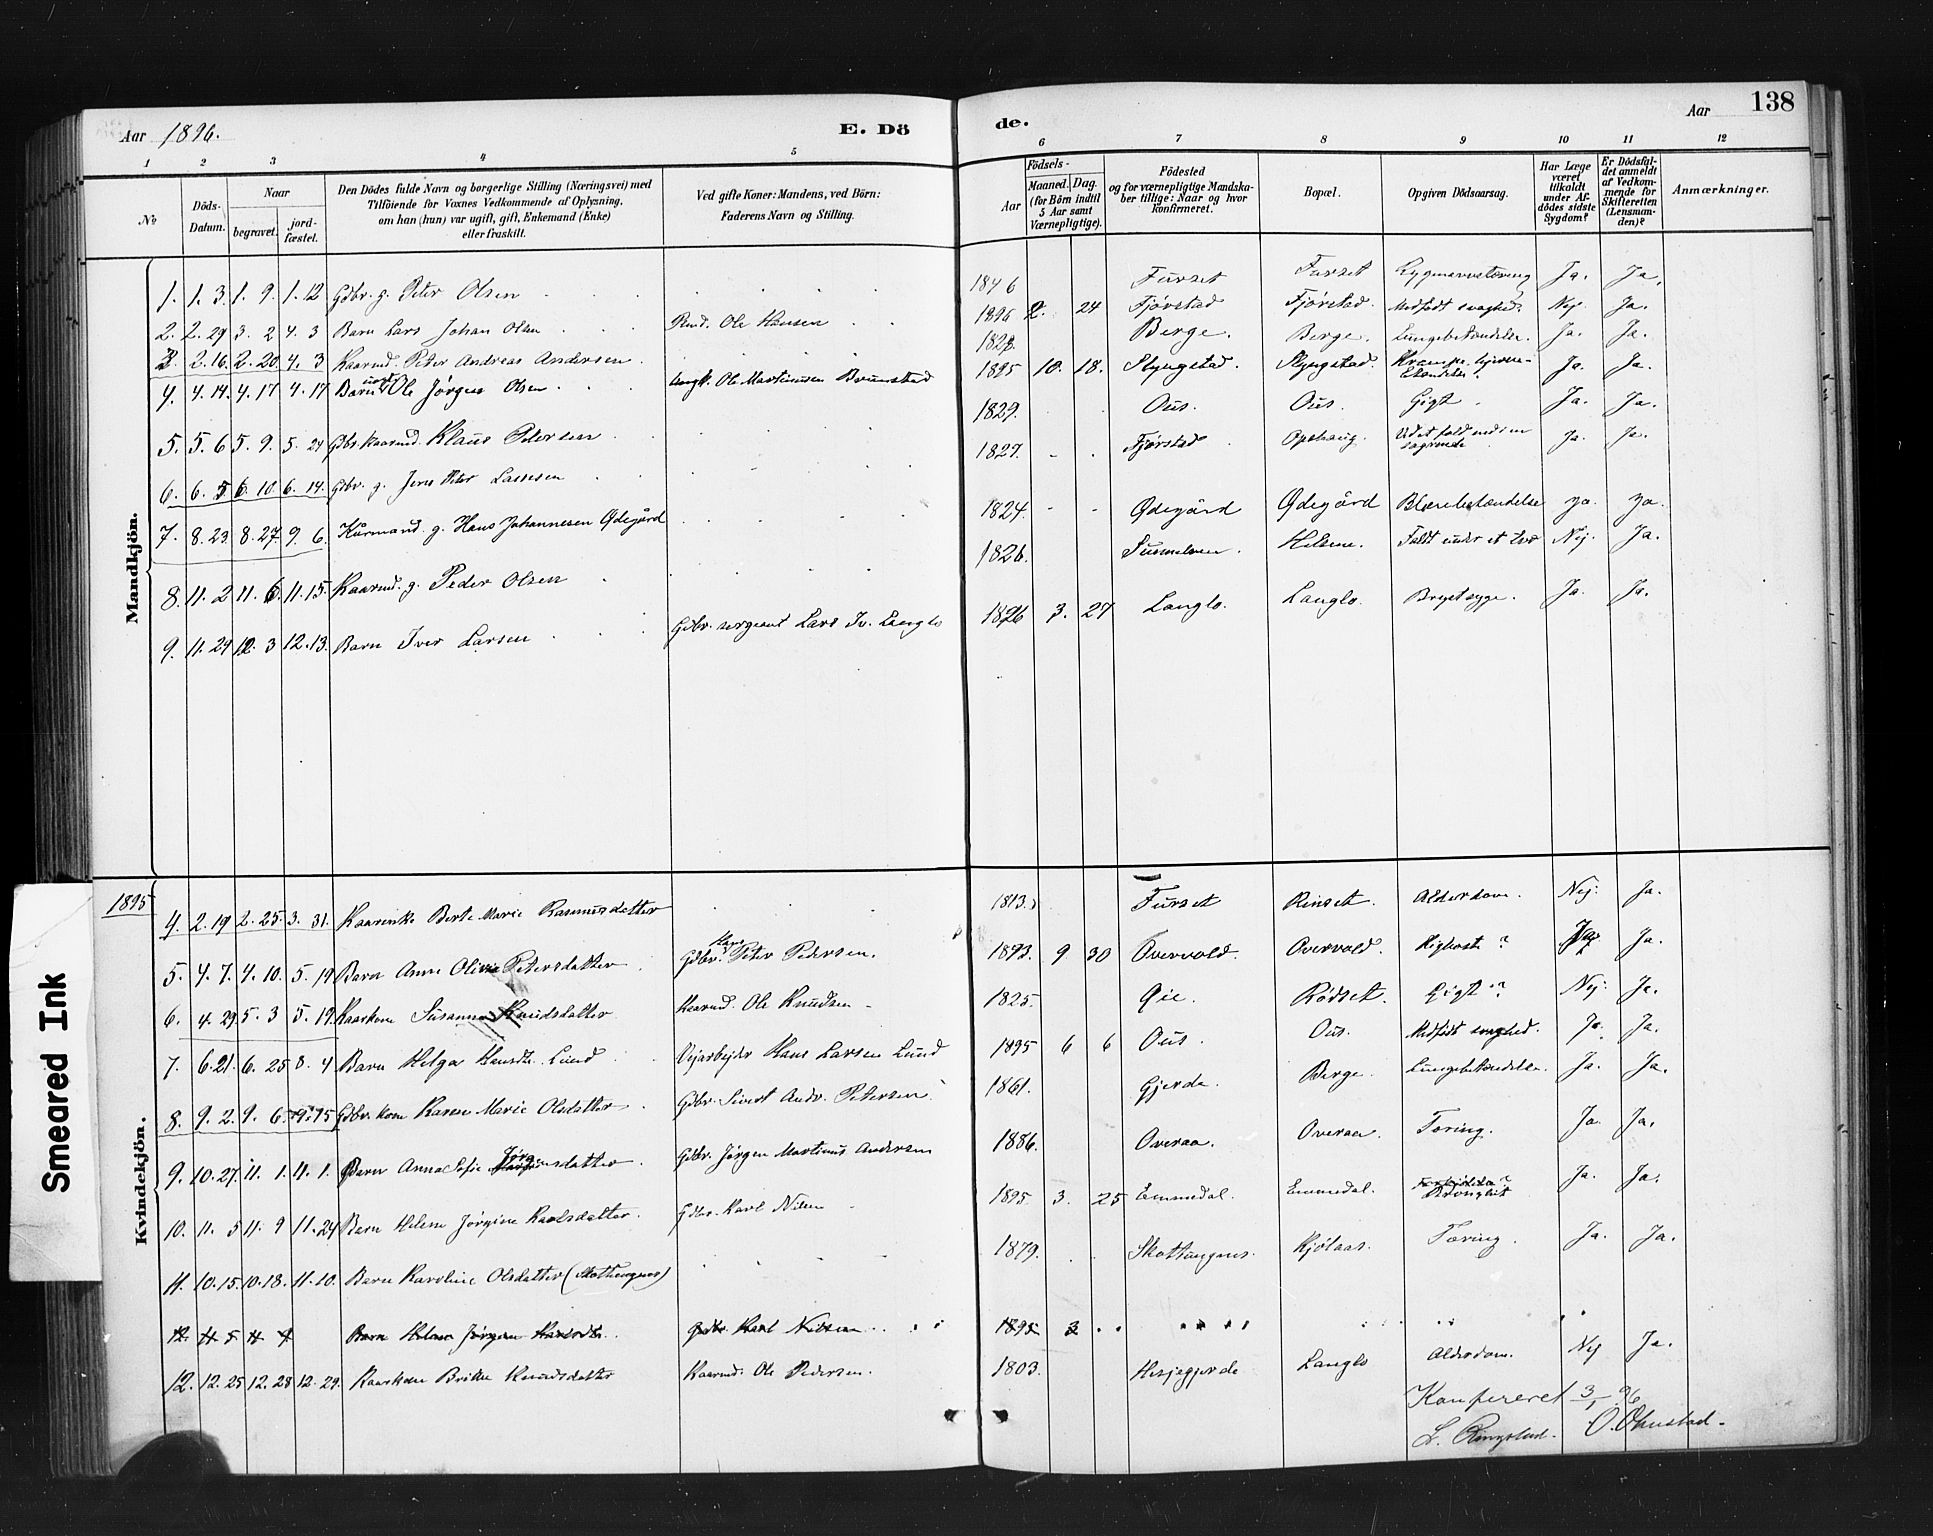 Aar 1896. E. Dö de. Aar 138
1 2 3 4 5 6 7 8 9 10 11 12
№
Döds-Datum.
Naar
begravet.
jord-fæstet.
Den Dödes fulde Navn og borgerlige Stilling (Næringsvei) med
Tilföiende for Voxnes Vedkommende af Oplysning,
om han (hun) var ugift, gift, Enkemand (Enke)
eller fraskilt.
Ved gifte Koner: Mandens, ved Börn:
Faderens Navn og Stilling.
Födsels-
Aar
Maaned. Dag.
(for Börn indtil
5 Aar samt
Værnepligtige).
Födested
og for værnepligtige Mandska-
ber tillige: Naar og hvor
konfirmeret.
Bopæl.
Opgiven Dödsaarsag.
Har Læge
været
tilkaldt
under Af-
dödes sidste
Sygdom?
Er Dödsfal-
det anmeldt
af Vedkom-
mende for
Skifteretten
(Lensman-
den)?
Anmærkninger.
Mandkjön.
1. 1. 3. 1. 9. 1. 12 Gdbr. g. Peter Olsen 1846 Furset Furset Ja. Ja.
2. 2. 29 3. 2 4. 3 Barn Lars Johan Olsen Pmd. Ole Hansen 1896 2. 24 Fjörstad Fjörstad. Medfödt svaghed. Nej Ja.
3. 2. 16. 2. 20. 4. 3 Kaarmd. Peter Andreas Andersen 1823. Berge. Berge. Lungebetændelse. Ja. Ja.
4. 4. 14. 4. 17 4. 17 Barn Ole Jørgen Olsen Ungk. Ole Martinusen Brunstad 1895 10. 18. Slyngstad. Slyngstad. Krampe Ja. Ja.
5. 5. 6 5. 9. 5. 24 Gdbr. kaarmd. Klaus Petersen 1829. Ous. Ous. Gigt Ja. Ja.
6. 6. 5 6. 10. 6. 14. Gdbr. g. Jens Peter Larsen 1827. Fjörstad Opshaug. Ja. Ja.
7. 8. 23. 8. 27. 9. 6. Kårmand. g. Hans Johannesen Ødegård 1824. Ødegård Ødegård Blærebetændelse ja. ja.
8. 11. 2 11. 6. 11. 15. Kaarmd. g. Peder Olsen 1826. Sunnelven. Helsem. Faldt under et Nej. Ja.
9. 11. 29 12. 3 12. 13. Barn Iver Larsen Gdbr. sergeant Lars Iv. Langlo 1896 3. 27 Langlo. Langlo. Brystsyge. Ja. Ja.
Kvindekjön.
1895
4. 2. 19 2. 25. 3. 31. Kaarenke Berte Marie Rasmusdatter 1813. Furset Rinset. Alderdom. Nej. Ja.
5. 4. 7. 4. 10. 5. 19 Barn Anne Olivia Petersdatter Gdbr. Hans Peter Pedersen. 1893. 9 30 Overvold. Overvold. Kighoste? Ja. Ja.
6. 4. 29. 5. 3 5. 19. Kaarkone Susanna Knudsdatter Kaarmd. Ole Knudsen 1825. Gie. Rødset. Gigt? Nej. Ja.
7. 6. 21. 6. 25 8. 4 Barn Helga Hansdtr. Lund Vejarbejder Hans Larsen Lund 1895 6 6 Ous. Ous. Medfödt svaghed. Ja. Ja.
8. 9. 2. 9. 6. 9. 15 Gdbr. kone Karen Marie Olsdatter Gdbr. Sivert Andr. Petersen 1861. Gjerde. Berge. Lungebetændelse. Ja. Ja.
9. 10. 27. 11. 1. 11. 1. Barn Anna Sofie Jörgensdatter. Gdbr. Jørgen Martinus Andersen 1886. Overaa. Overaa. Tæring. Ja. Ja.
10. 11. 5 11. 9 11. 24 Barn Helene Jørgine Karlsdatter. Gdbr. Karl Nilsen 1895 3. 25 Emmedal. Emmedal. Bronchit Ja. Ja.
11. 10. 15. 10. 18. 11. 10. Barn Karoline Olsdatter (Skothaugnes) 1879. Kjölaas. Tæring. Ja. Ja.
12. 11 5 11 9 Barn Helene Jörgine Karlsdtr. Gdbr. Karl Nilsen 1895 3
12. 12. 25 12. 28 12. 29. Kaarkone Brithe Knudsdatter Kaarmd. Ole Pedersen. 1803. Hesjegjerde Langlo Alderdom. Nej Ja.
Konfereret 3/1 96
L. Ringstad. O. Ohnstad.
Smeared Ink